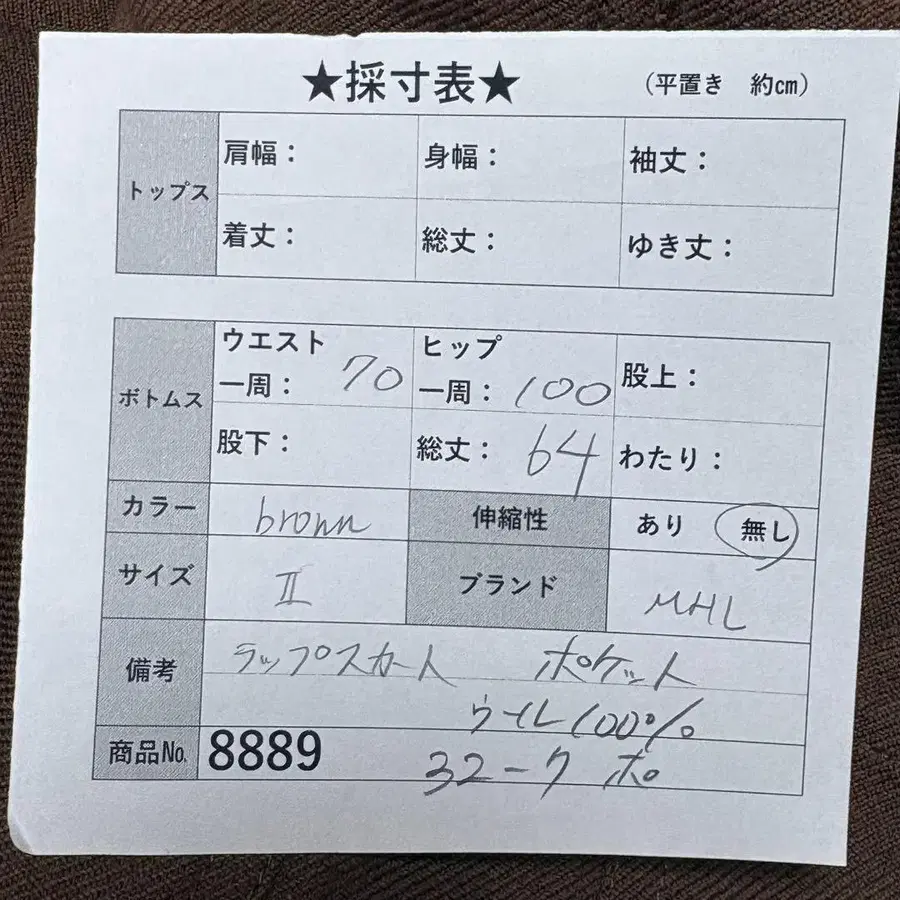 ★採寸表★ （平置き 約cm）
トップス 肩幅： 身幅： 袖丈：
着丈： 総丈： ゆき丈：
ボトムス ウエスト一周： 70 ヒップ一周： 100 股上：
股下： 総丈： 64 わたり：
カラー brown 伸縮性 あり 無し
サイズ II ブランド MHL
備考 ラップスカート ポケット
ウール100%
商品No. 8889 32-ク ポ